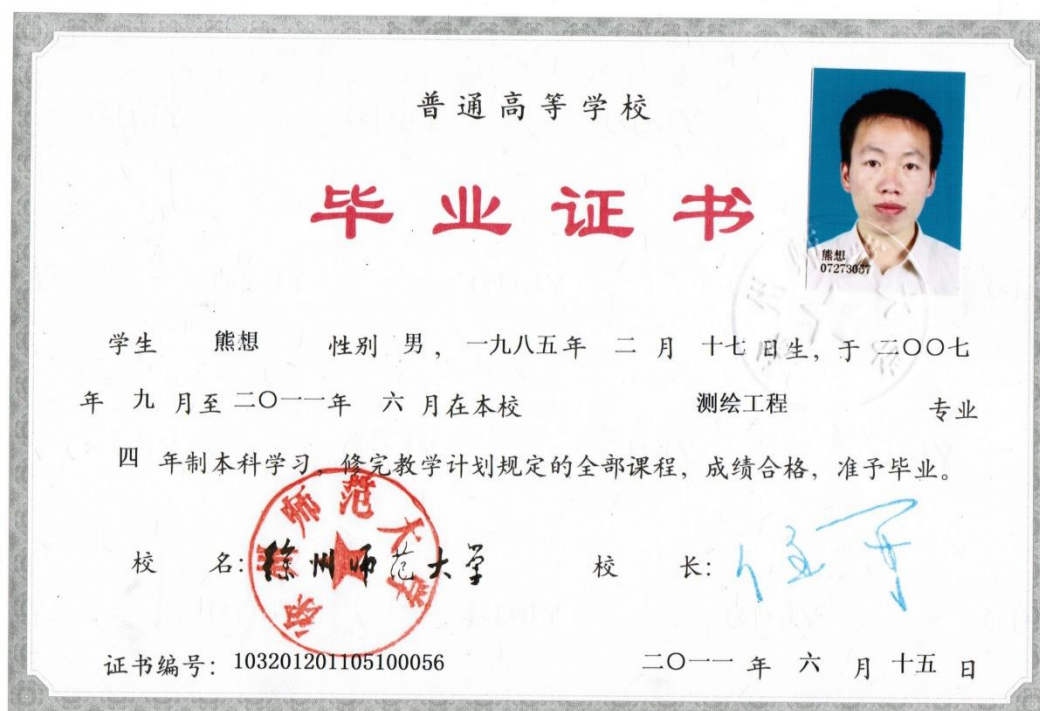 普通高等学校
毕业证书
熊想
07273057
学生 熊想 性别 男，一九八五年 二 月 十七 日生，于 二〇〇七
年 九 月至 二〇一一年 六 月在本校 测绘工程 专业
四 年制本科学习，修完教学计划规定的全部课程，成绩合格，准予毕业。
徐州师范大学
校 名：徐州师范大学 校 长：
证书编号：103201201105100056 二〇一一 年 六 月 十五 日